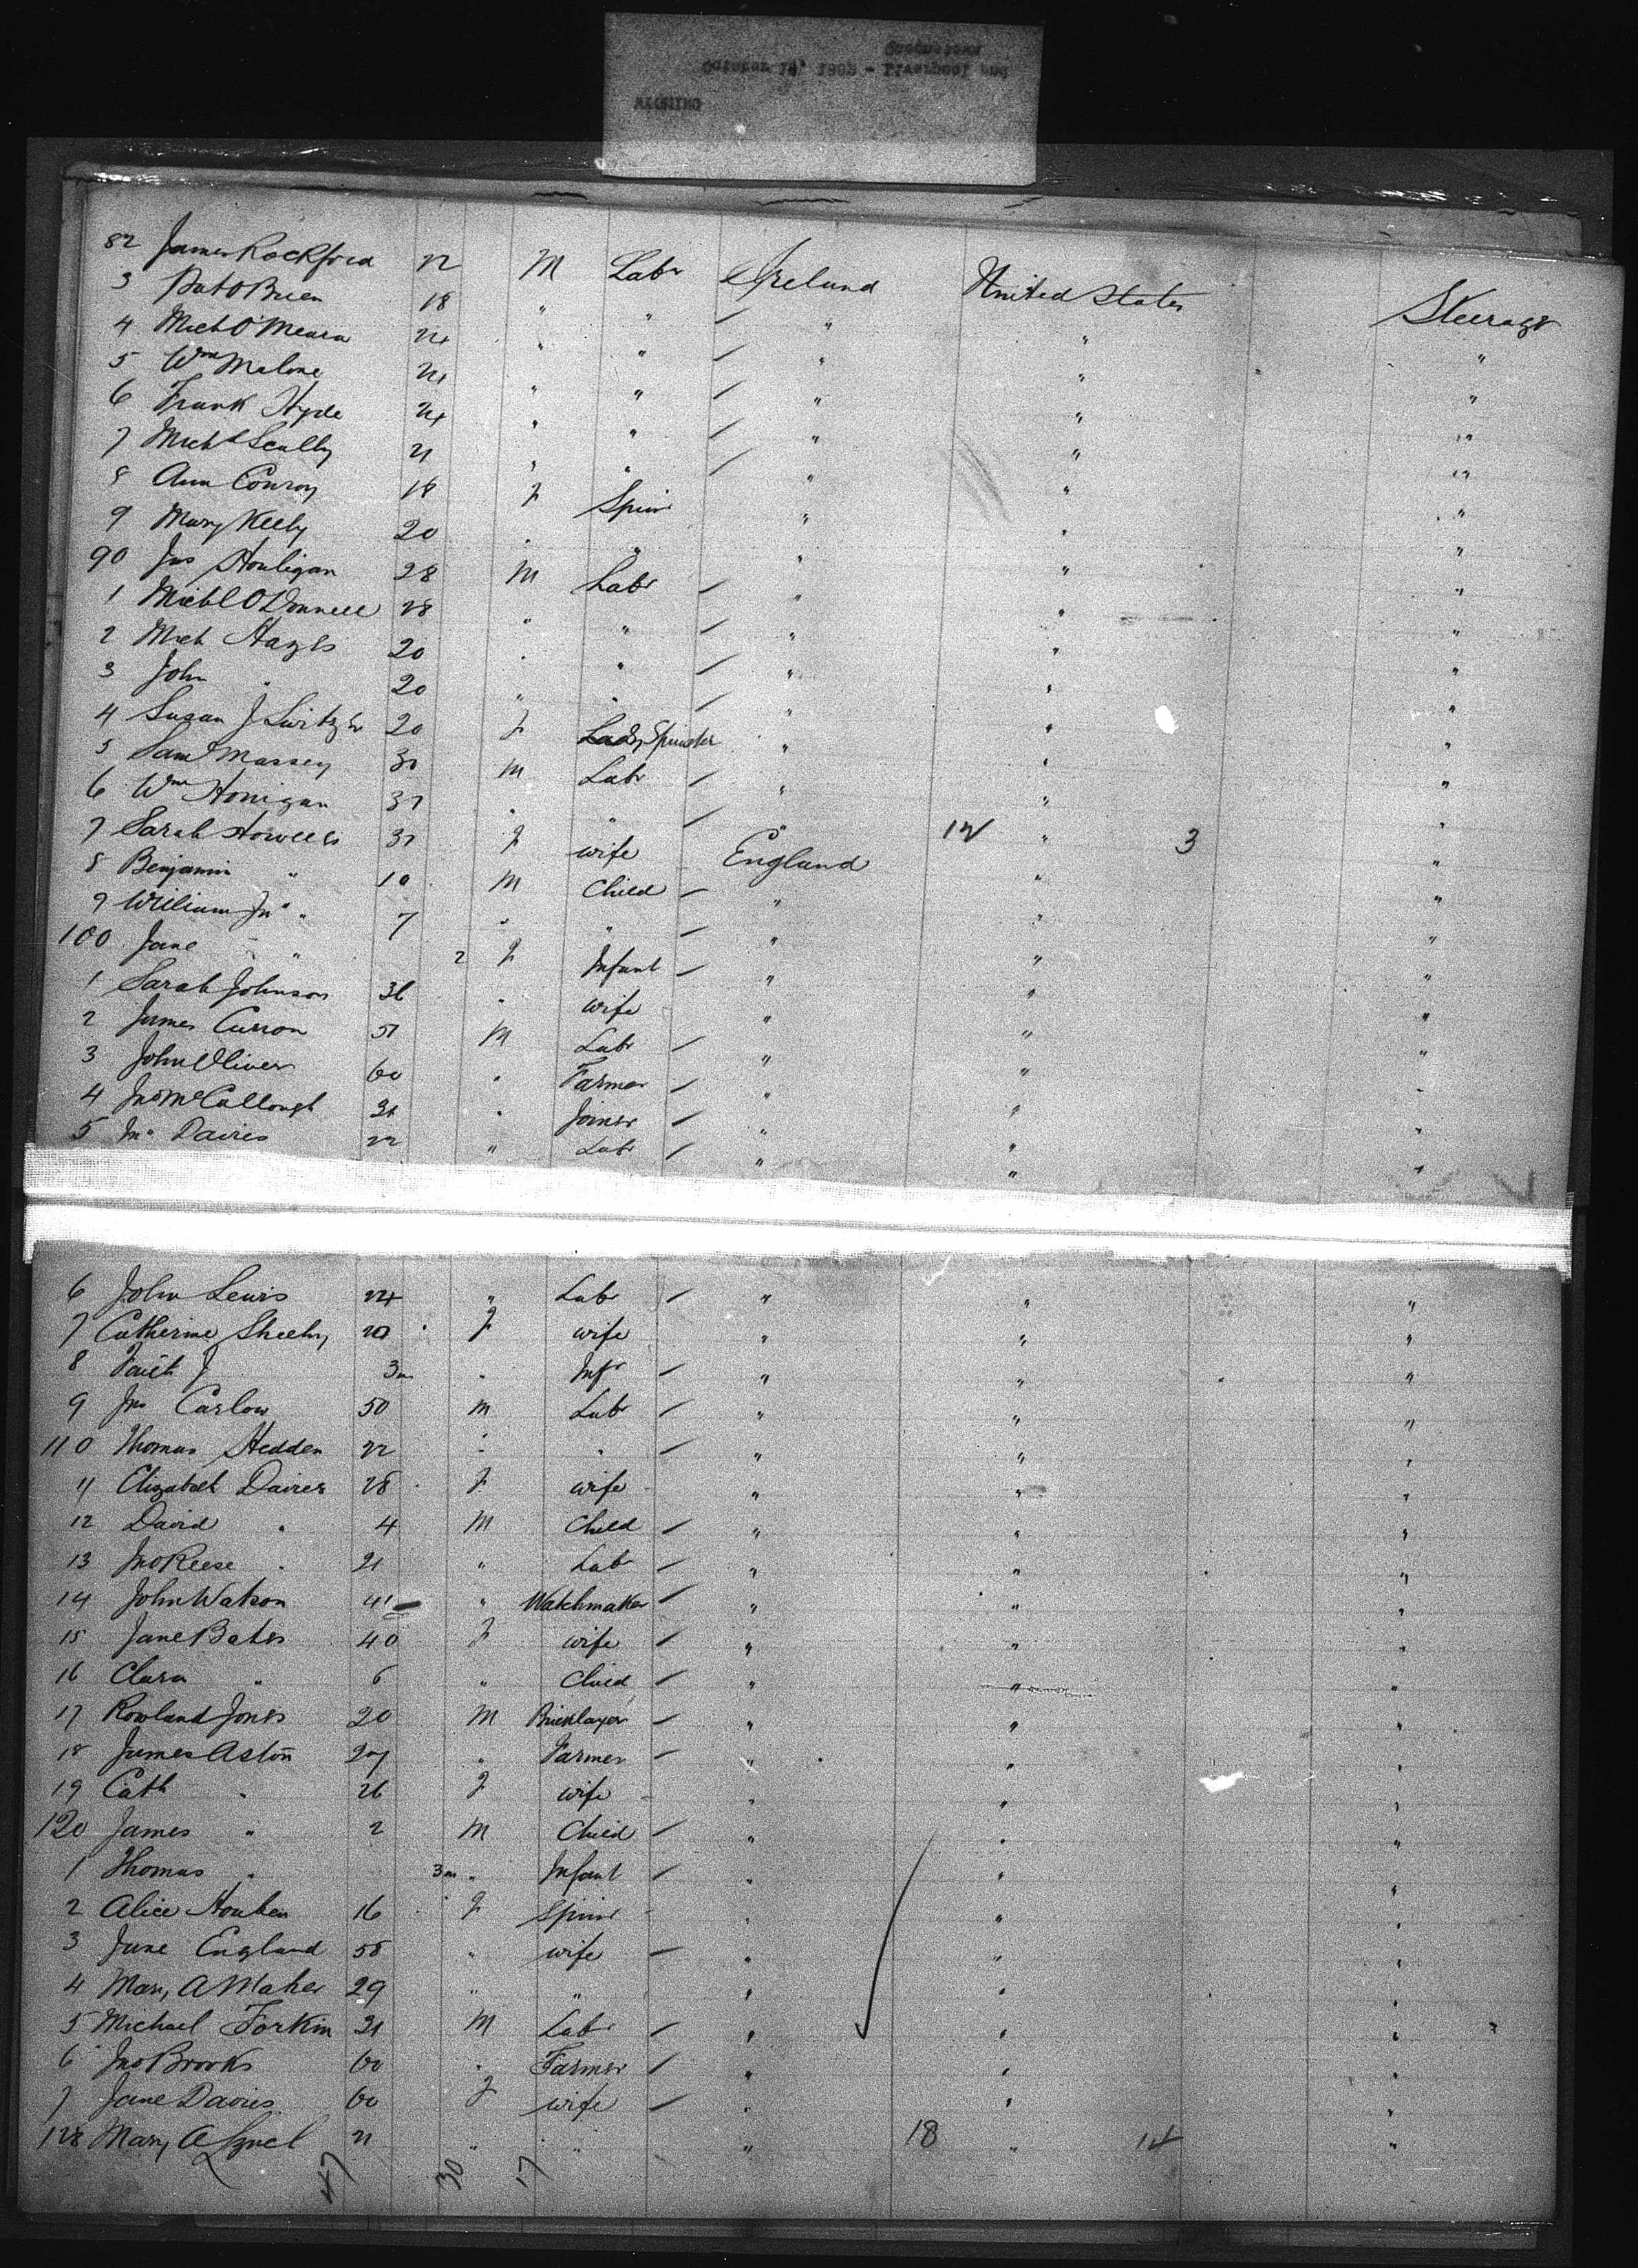 October 14, 1903 - Liverpool and
82 James Rockford 22 M Labr Ireland United States Steerage
3 Pat O'Brien 18 " " " " "
4 Mich O'Meara 24 " " " " "
5 Wm Malone 24 " " " " "
6 Frank Hyde 24 " " " " "
7 Michl Scully 21 " " " " "
8 Ann Conroy 18 F Spinr " " "
9 Mary Keely 20 " " " " "
90 Jas Houligan 28 M Labr " " "
1 Michl O'Donnell 28 " " " " "
2 Mich Hayes 20 " " " " "
3 John " 20 " " " " "
4 Susan J Switzer 20 F Spinster " " "
5 Saml Massey 30 M Labr " " "
6 Wm Honigan 37 " " " " "
7 Sarah Howells 37 F wife England 12 " 3 "
8 Benjamin " 10 M Child " " "
9 William Jno " 7 " " " " "
100 Jane " 2 F Infant " " "
1 Sarah Johnson 36 " wife " " "
2 James Curron 57 M Labr " " "
3 John Oliver 60 " Farmer " " "
4 Jno McCullough 31 " Joiner " " "
5 Jno Davies 22 " Labr " " "
6 John Lewis 24 " Labr " " "
7 Catherine Sheehy 20 F wife " " "
8 J 3m " Inft " " "
9 Jas Carlow 50 M Labr " " "
110 Thomas Hedden 22 " " " " "
11 Elizabeth Davies 28 F wife " " "
12 David " 4 M Child " " "
13 Jno Reese 21 " Labr " " "
14 John Watson 41 " Watchmaker " " "
15 Jane Bates 40 F wife " " "
16 Clara " 6 " Child " " "
17 Rowland Jones 20 M Bricklayer " " "
18 James Aston 27 " Farmer " " "
19 Cath " 26 F wife " " "
120 James " 2 M Child " " "
1 Thomas " 3m " Infant " " "
2 Alice Houben 16 F Spinr " " "
3 Jane England 58 " wife " " "
4 Mary A Maher 29 " " " " "
5 Michael Forkin 21 M Labr " " "
6 Jno Brooks 60 " Farmer " " "
7 Jane Davies 60 F wife " " "
128 Mary A Lynch 21 " " " 18 " 14 "
47 30 17